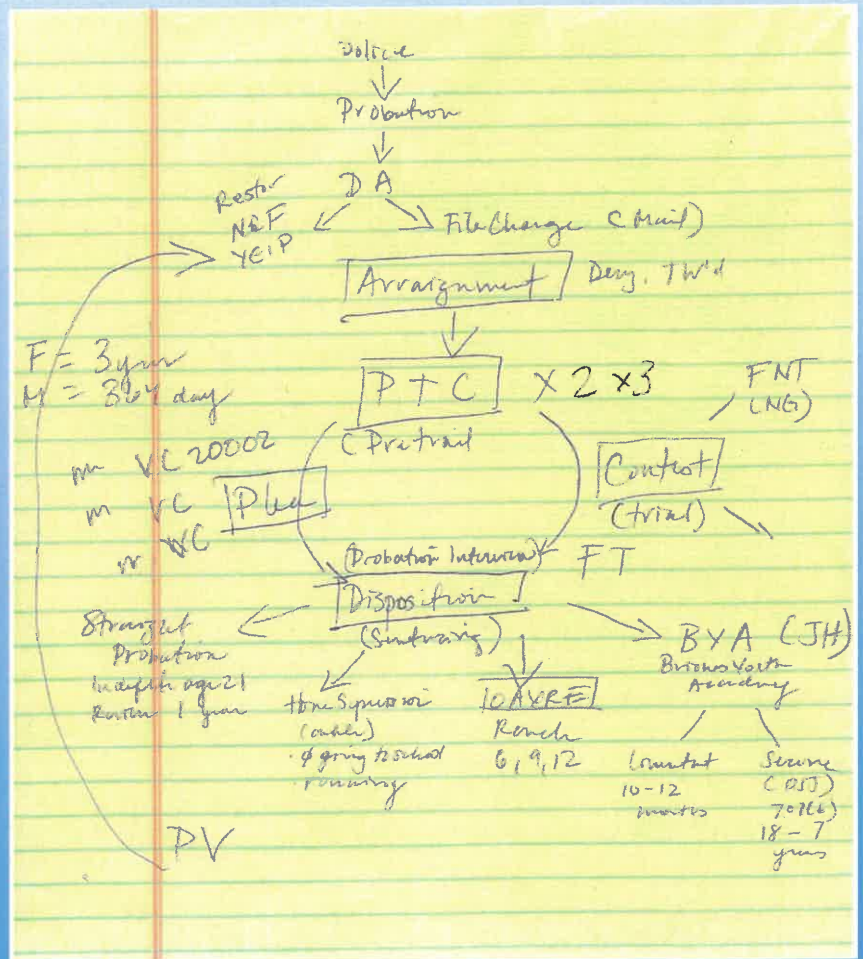 Police
Probation
DA
Restor
NEF
YEIP
File Charge (Mail)
Arraignment
Deny, TW'd
F = 3 year
M = 364 day
PTC x 2 x3
(Pretrail
FNT
(NG)
m VC 20002
m VC
m VC
Plea
Contest
(trial)
(Probation Interview)
FT
Disposition
(Sentencing)
Straight
Probation
Indefinite age 21
Review 1 year
Home Supervision
(ankle)
· ∅ going to school
· running
OAYRF
Ranch
6, 9, 12
BYA (JH)
Briones Youth
Academy
10-12
months
Secure
(DSJ)
707(b)
18 - 7
years
PV